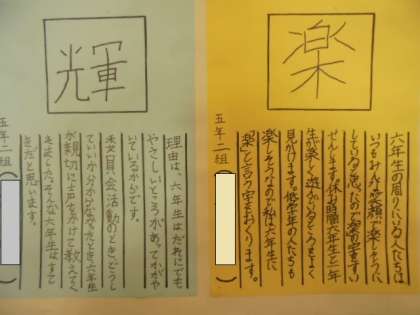 楽
六年生の周りにいる人は
いつもみんな笑顔で楽しそうに
していると思たので楽の字をすい
せんします。休み時間六年生と一年
生が楽しく遊んでいるところをよく
見かけます。低学年の人たちも
楽しそうなので私は六年生に
「楽」と言う字をおくります。
五年二組
輝
理由は、六年生はだれにでも
やさしいところがあってかがや
いているからです。
委員会活動のとき、どうし
ていいか分からなかったとき、六年生
が親切に声をかけて教えてく
れました。そんな六年生はすて
きだと思います。
五年二組